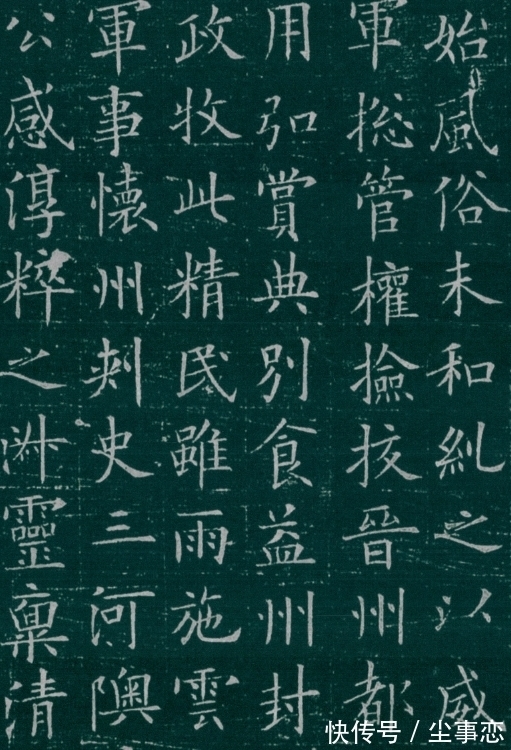 始風俗未和糺之以威
軍捴管權撿挍晉州都
用弘賞典別食益州封
政牧此精民雖雨施雲
軍事懷州刺史三河隩
公感淳粹之淑靈稟清
快传号 / 尘事恋